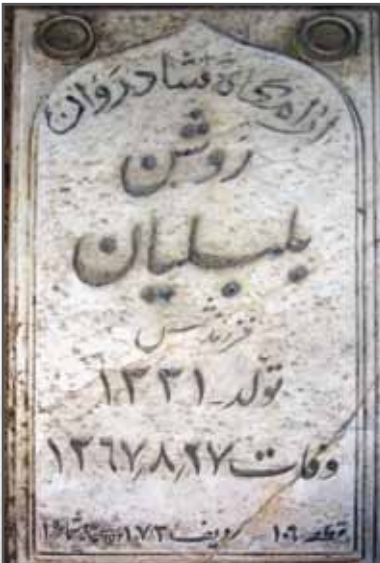 آرامگاه شادروان
روشن
بلبلیان
فرزند شمس
تولد ۱۳۳۱
وفات ۱۳۶۷٫۸٫۲۷
قطعه ۱۰۶ ردیف ۱۷۳